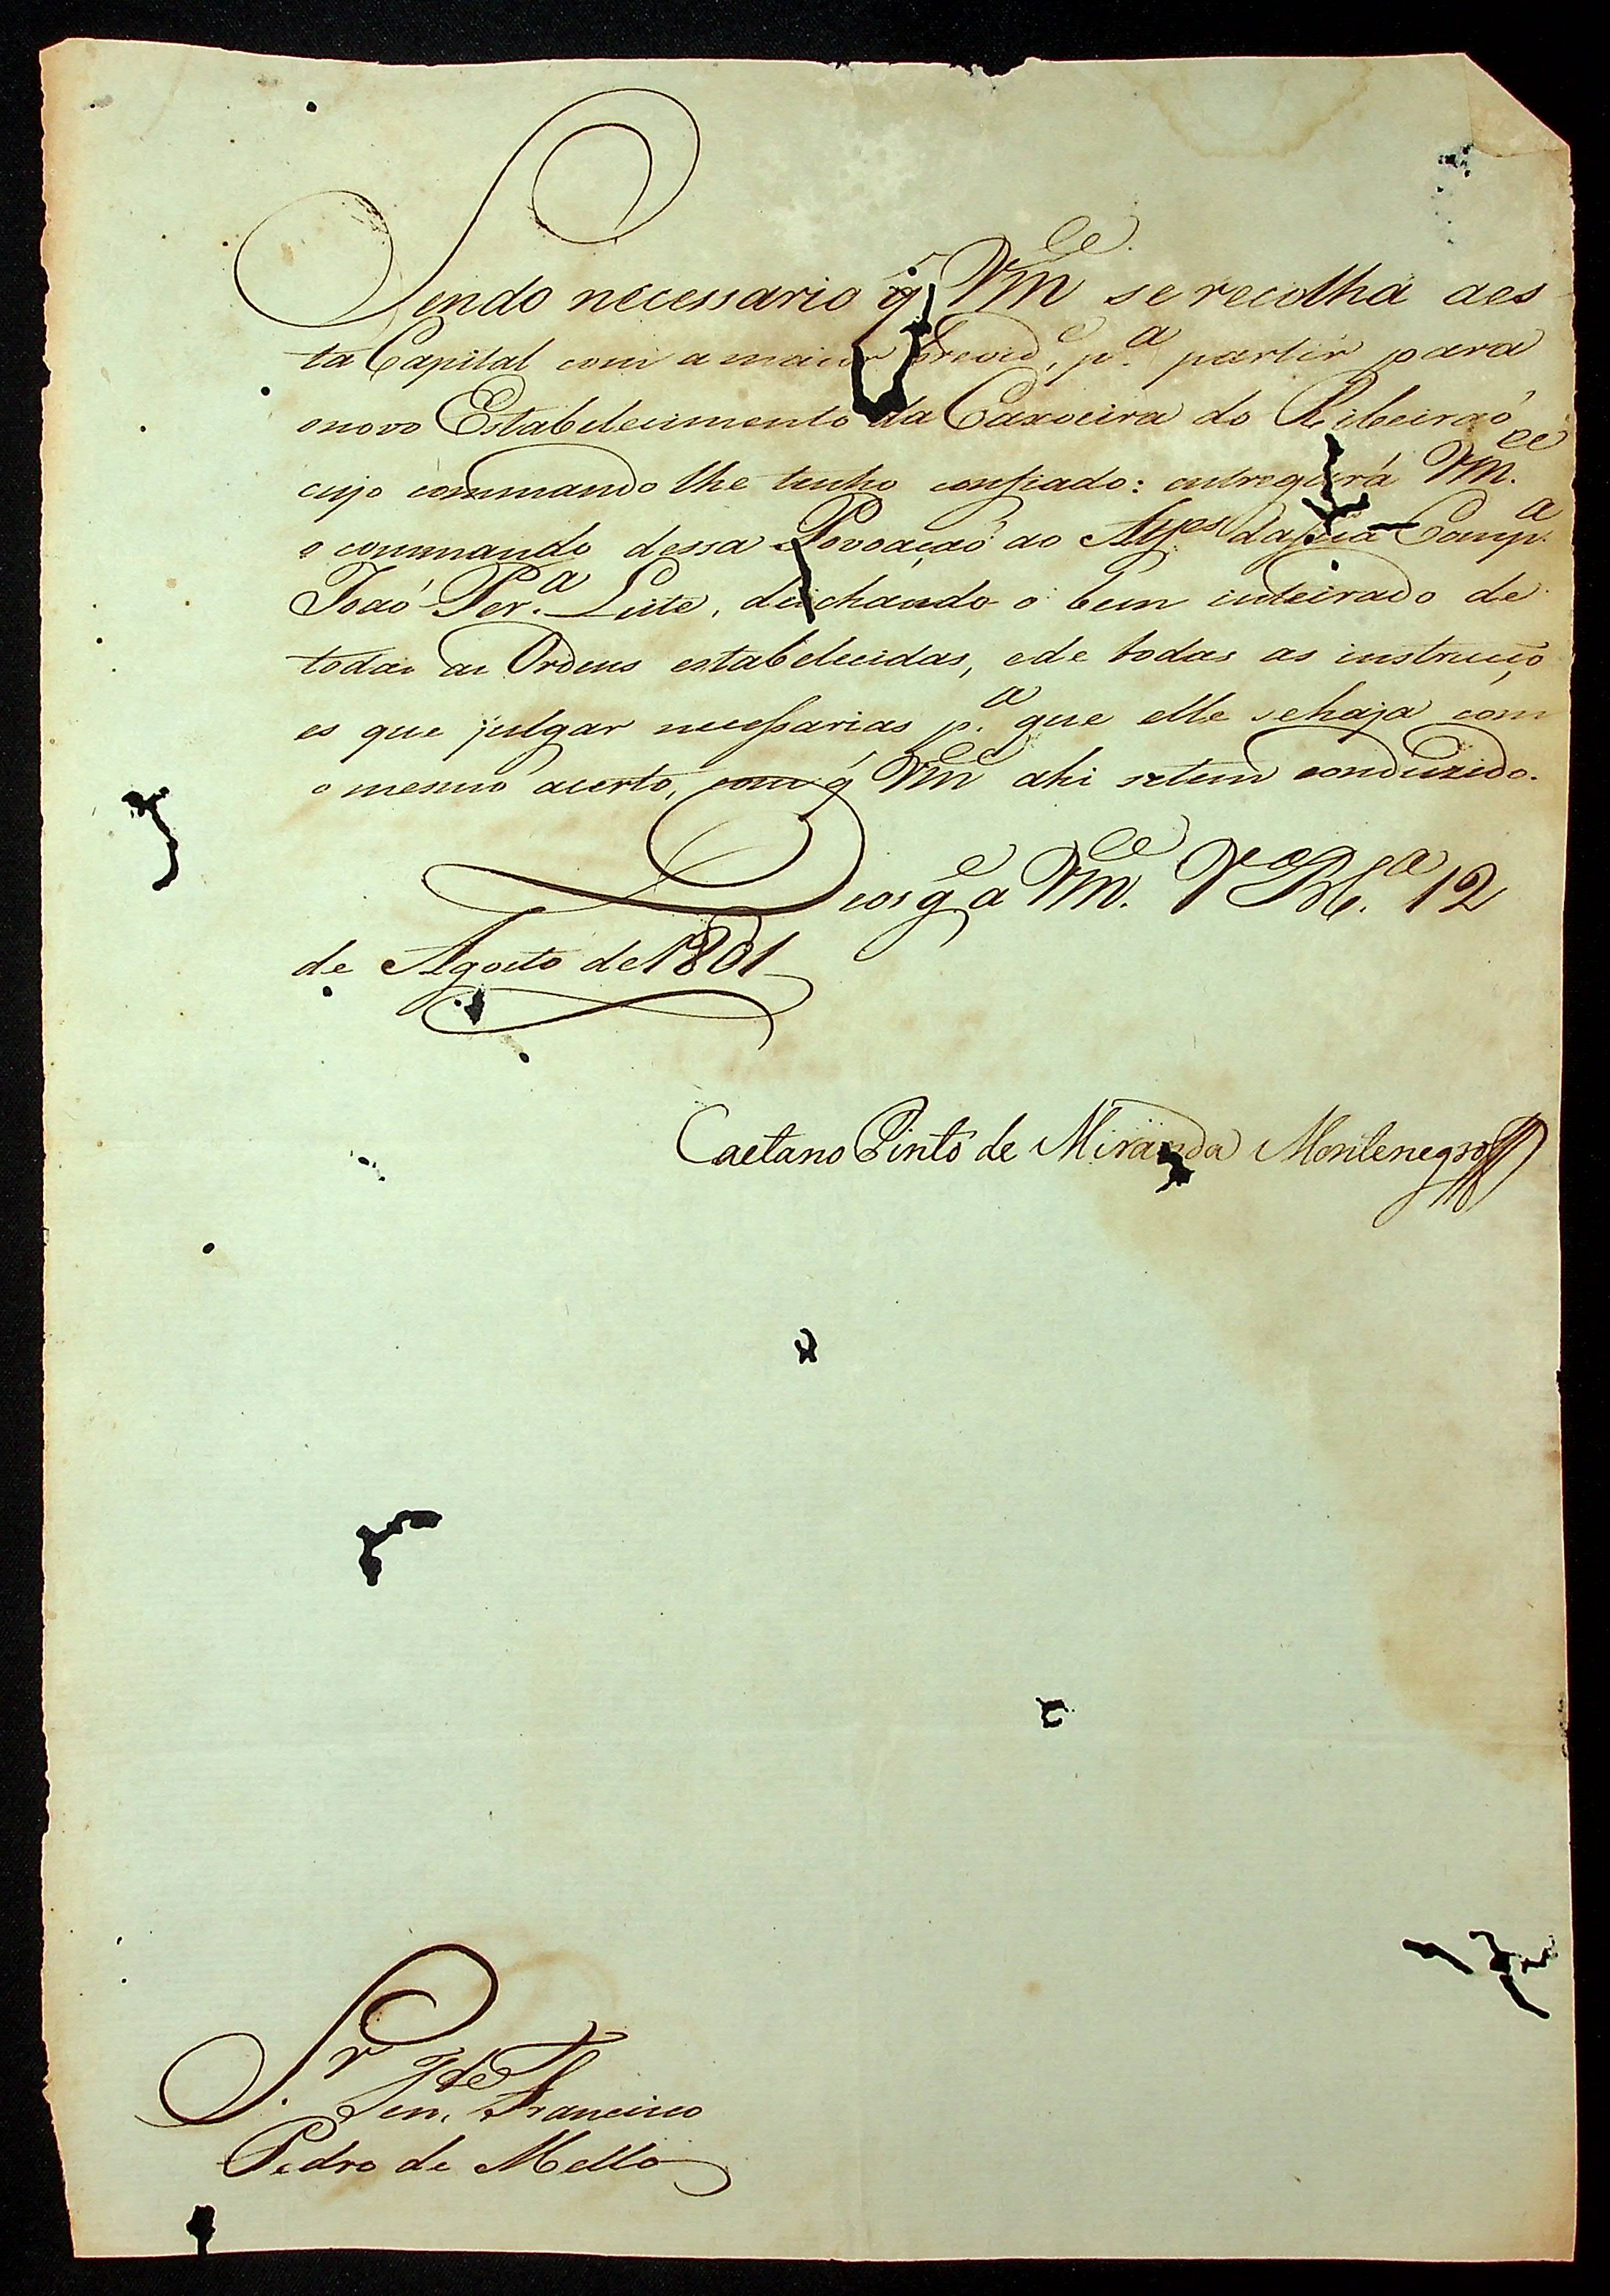 Sendo necessario q̃ Vm.ce se recolha aes
ta Capital com a maior brevid.e, p.a partir para
onovo Estabelecimento da Caxoeira do Ribeiraõ
cujo commando lhe tenho confiado: entregará Vm.ce
o commando dessa Povoaçaõ ao Alfes da sua Comp.a
Joaõ Per.a Leite, deichando o bem inteirado de
todas as Ordens estabelecidas, ede todas as instrucço
es que julgar necessarias p.a que elle sehaja com
o mesmo acerto, com q̃ Vm.ce ahi setem conduzido.
Deos g.e a Vm.ce V.a B.a 12
de Agosto de 1801
Caetano Pinto de Miranda Montenegro
S.r Ten.te Francisco
Pedro de Mello